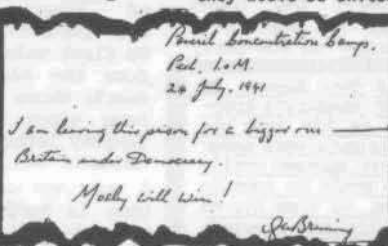 Peveril Concentration Camp,
Peel, I.o.M.
24 July, 1941
I am leaving this prison for a bigger one —
Britain under Democracy.
Mosley will win!